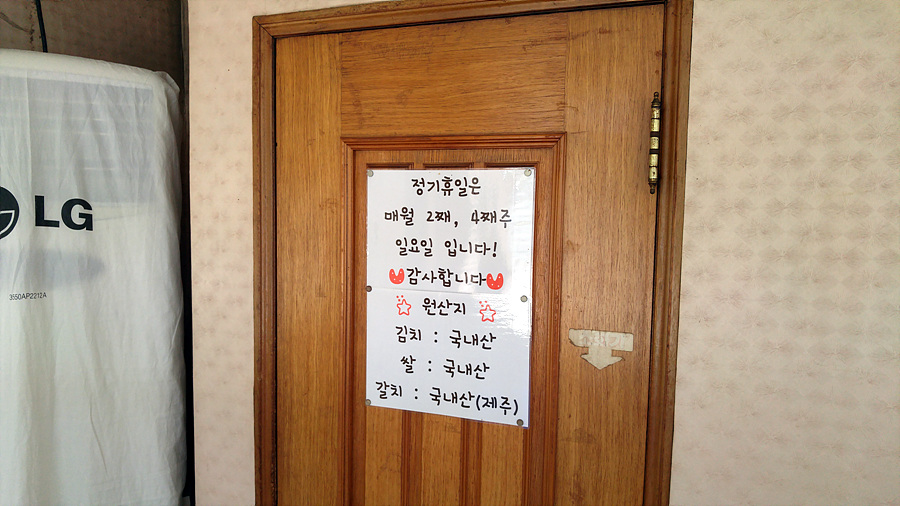 LG
3550AP2212A
정기휴일은
매월 2째, 4째주
일요일 입니다!
감사합니다
원산지
김치 : 국내산
쌀 : 국내산
갈치 : 국내산(제주)